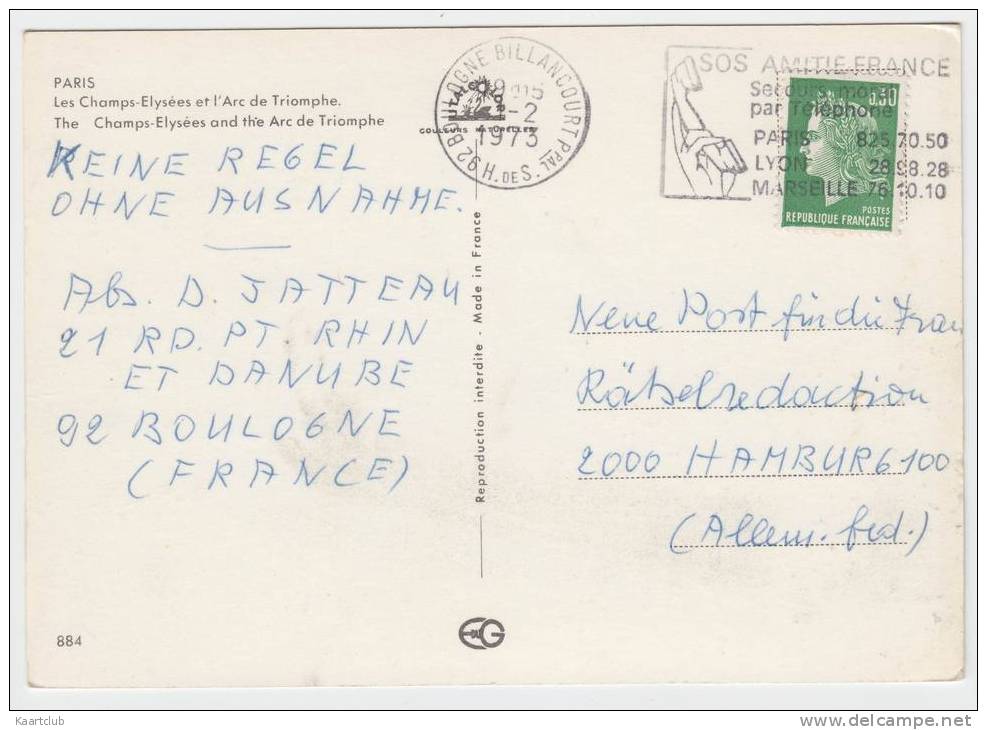 PARIS
Les Champs-Elysées et l'Arc de Triomphe.
The Champs-Elysées and the Arc de Triomphe
KEINE REGEL
OHNE AUSNAHME.
Abs. D. JATTEAU
21 RD. PT RHIN
ET DANUBE
92 BOULOGNE
(FRANCE)
884
ITALCOLOR
COULEURS NATURELLES
92 BOULOGNE BILLANCOURT PPAL
H. DE S.
-2
1973
Reproduction interdite - Made in France
EKG
SOS AMITIE FRANCE
Secours moral
par Téléphone
PARIS 825 70.50
LYON 28.98.28
MARSEILLE 76.10.10
0,30
POSTES
REPUBLIQUE FRANÇAISE
Neue Post für die Frau
Rätselredaction
2000 HAMBURG 100
(Allem. fed.)
Kaartclub
www.delcampe.net